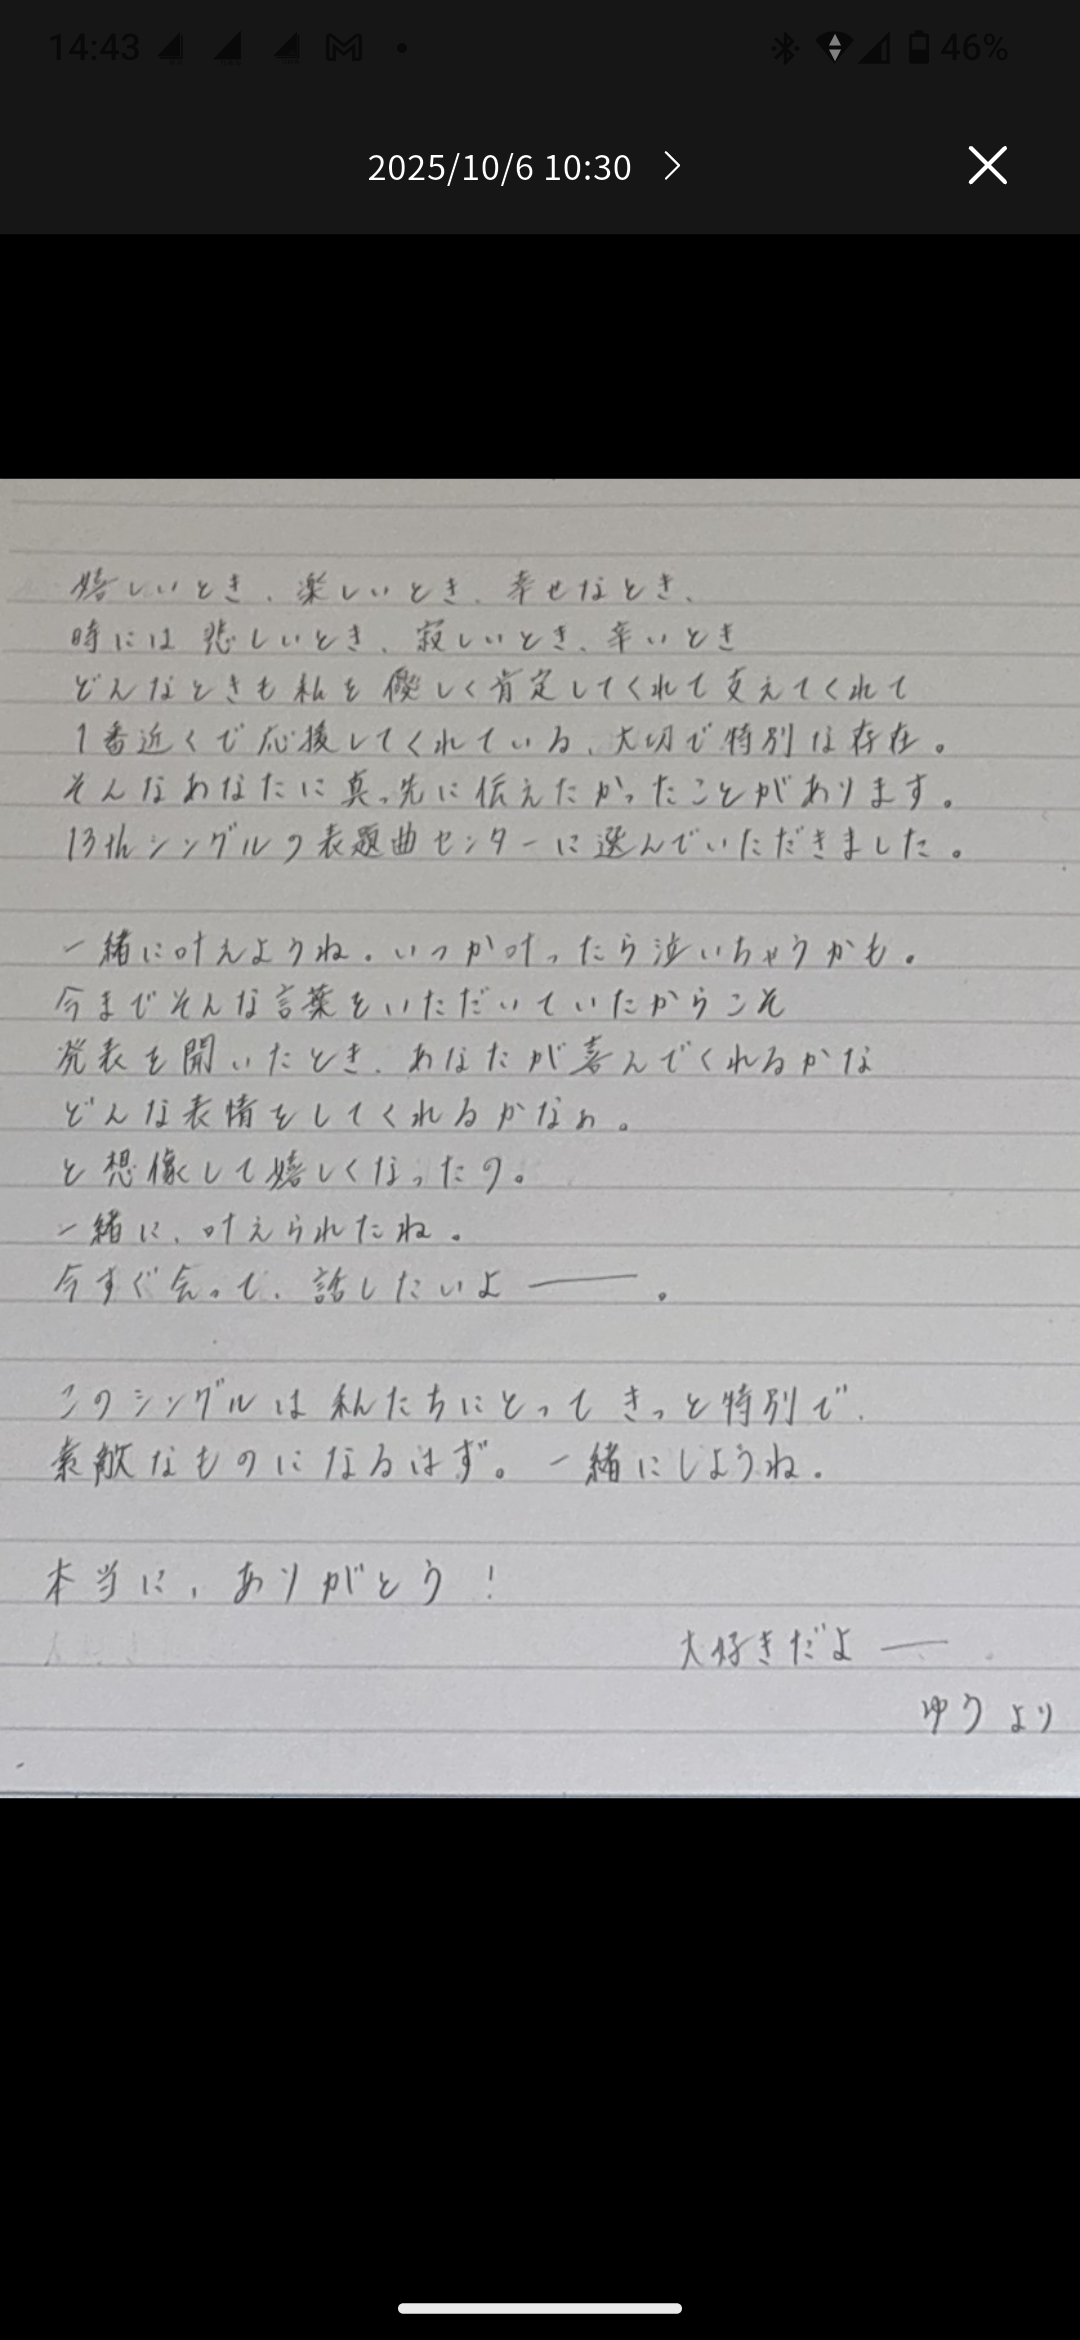 14:43
46%
2025/10/6 10:30
嬉しいとき、楽しいとき、幸せなとき、
時には悲しいとき、寂しいとき、辛いとき
どんなときも私を優しく肯定してくれて支えてくれて
1番近くで応援してくれている、大切で特別な存在。
そんなあなたに真っ先に伝えたかったことがあります。
13thシングルの表題曲センターに選んでいただきました。
一緒に叶えようね。いつか叶ったら泣いちゃうかも。
今までそんな言葉をいただいていたからこそ
発表を聞いたとき、あなたが喜んでくれるかな
どんな表情をしてくれるかなぁ。
と想像して嬉しくなったの。
一緒に、叶えられたね。
今すぐ会って、話したいよ──。
このシングルは私たちにとってきっと特別で、
素敵なものになるはず。一緒にしようね。
本当に、ありがとう！
大好きだよ─
ゆうより